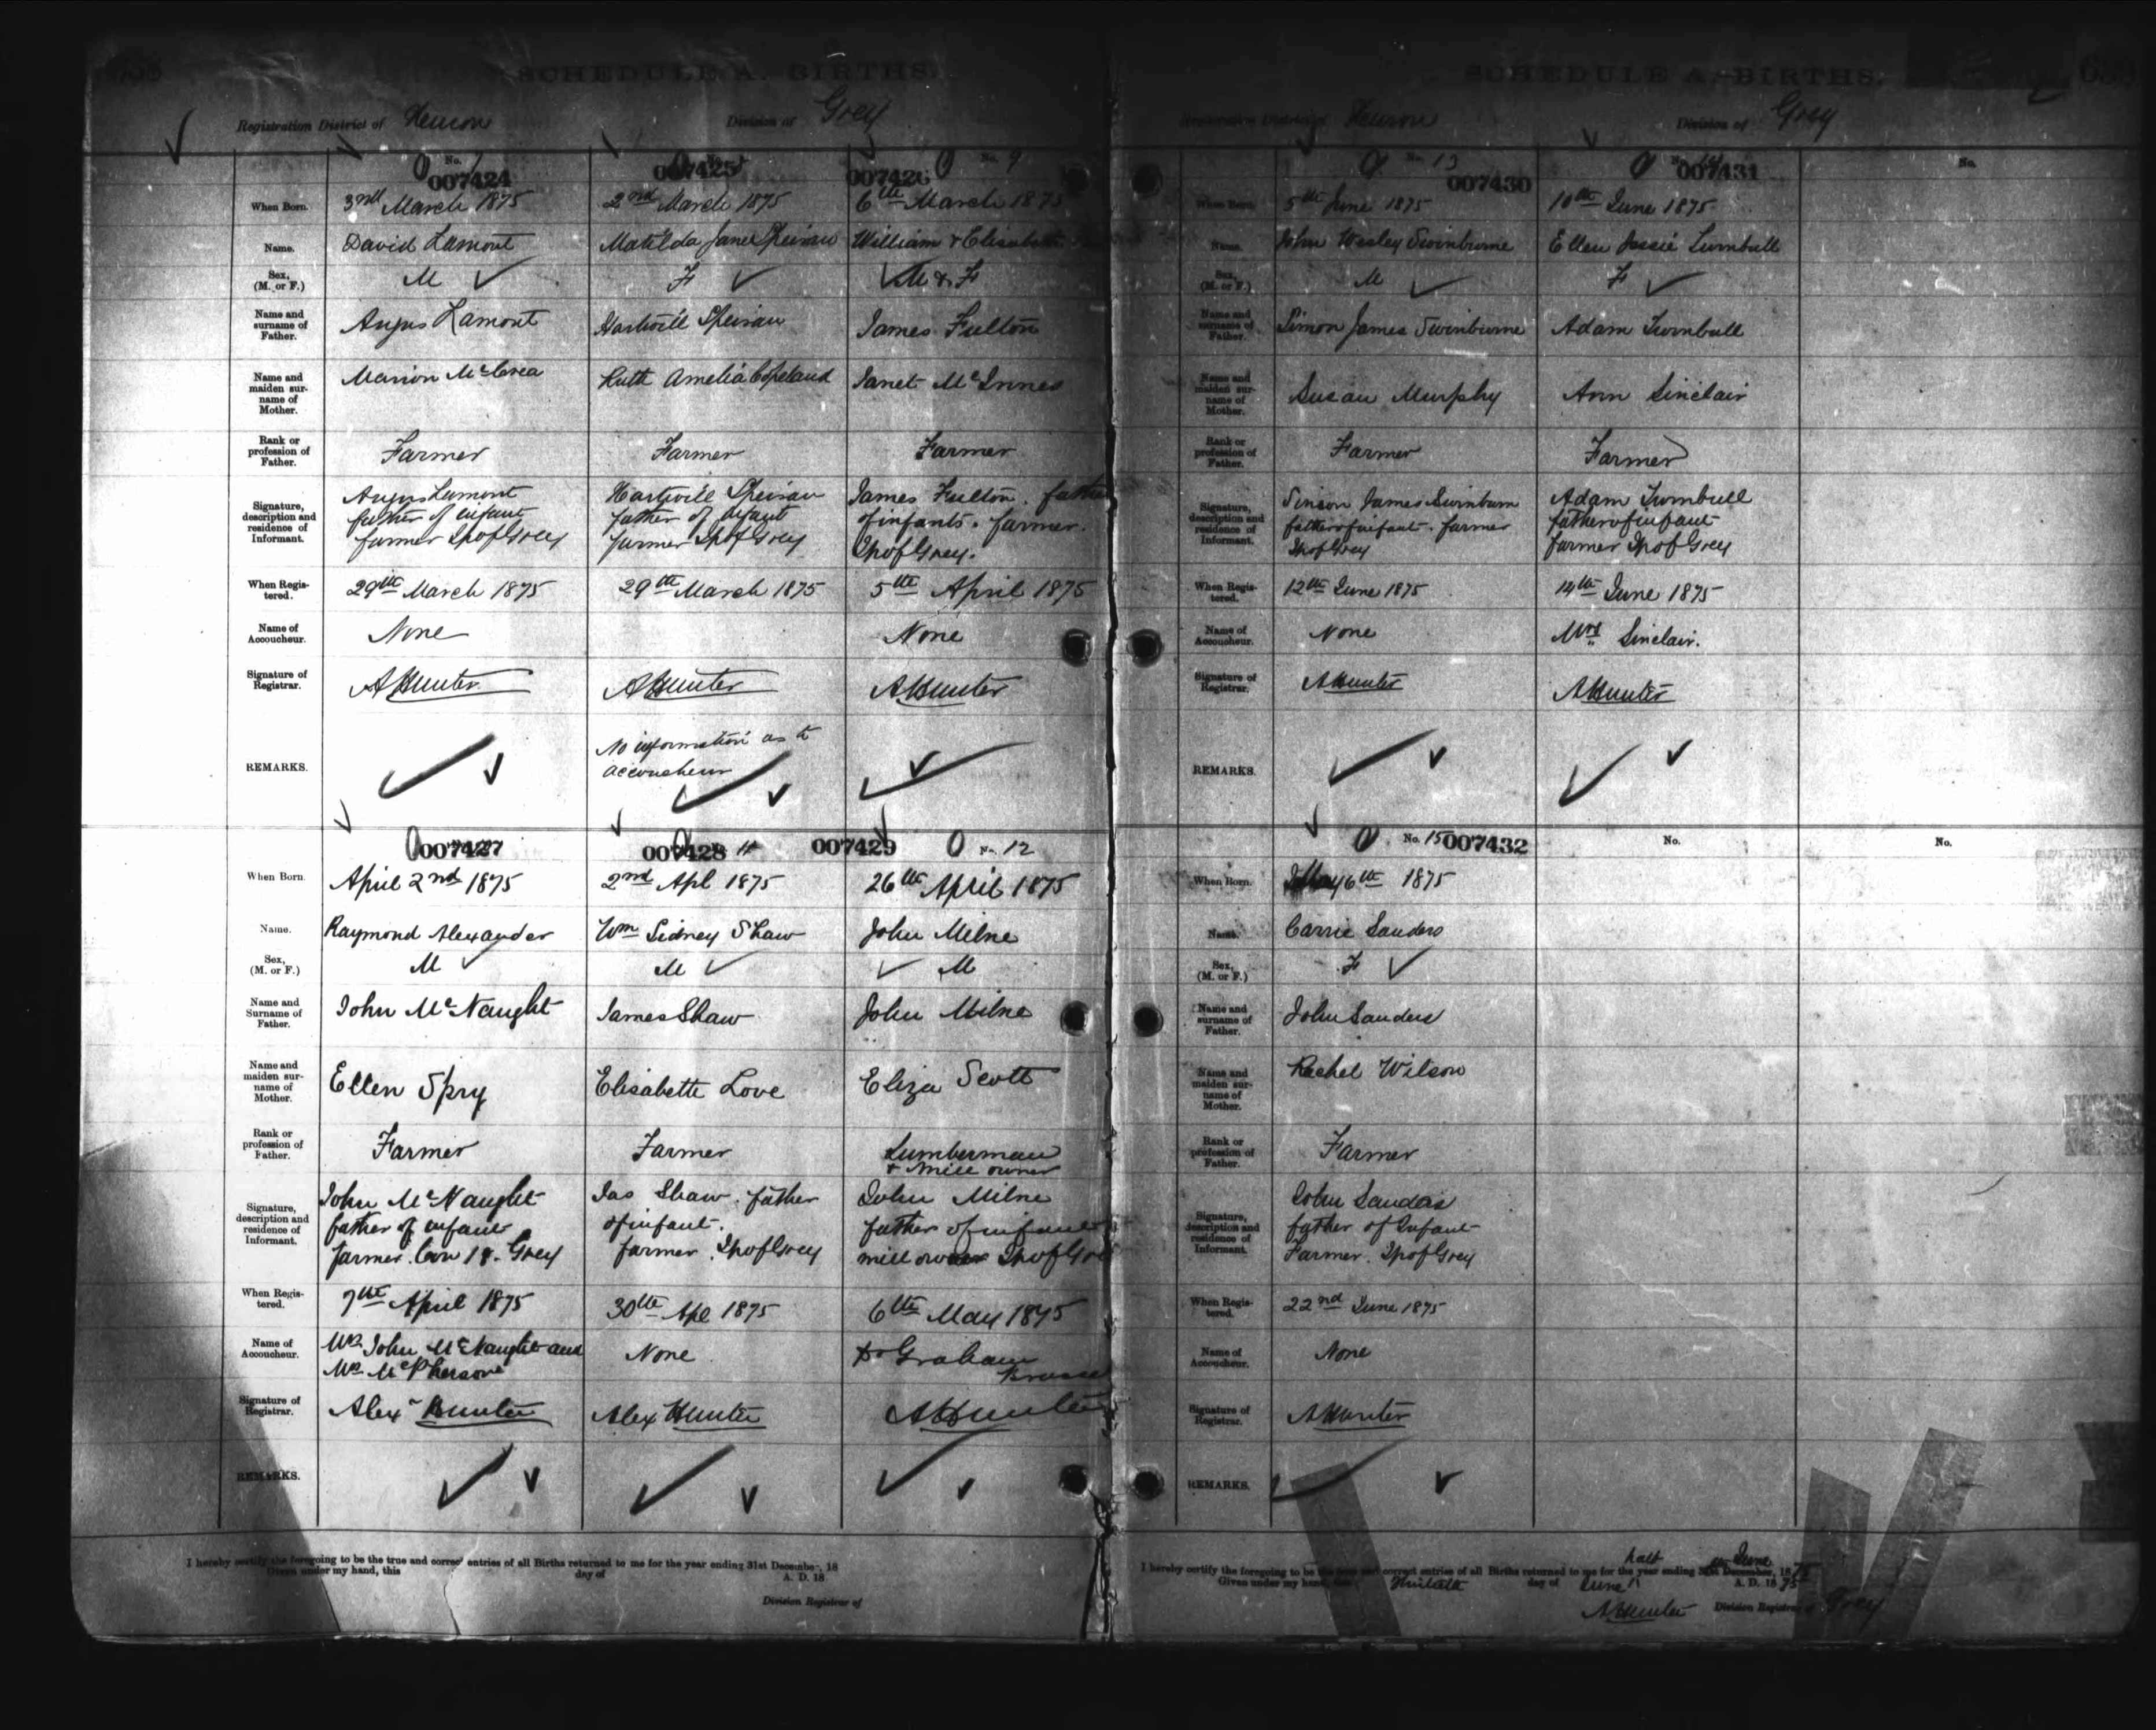 SCHEDULE A. BIRTHS.
Registration District of Huron Division of Grey
No. 007424
When Born. 3rd March 1875
Name. David Lamont
Sex, (M. or F.) M
Name and surname of Father. Angus Lamont
Name and maiden surname of Mother. Marion McCrea
Rank or profession of Father. Farmer
Signature, description and residence of Informant. Angus Lamont
father of infant
farmer Tp of Grey
When Registered. 29th March 1875
Name of Accoucheur. None
Signature of Registrar. A Hunter
REMARKS.
007425
2nd March 1875
Matilda Jane Speiran
F
Hartwill Speiran
Ruth Amelia Copeland
Farmer
Hartwill Speiran
father of infant
farmer Tp of Grey
29th March 1875
A Hunter
No information as to
accoucheur
007426 No. 9
6th March 1875
William & Elisabeth
M & F
James Fulton
Janet McInnes
Farmer
James Fulton. father
of infants. farmer.
Tp of Grey.
5th April 1875
None
A Hunter
007427
When Born. April 2nd 1875
Name. Raymond Alexander
Sex, (M. or F.) M
Name and Surname of Father. John McNaught
Name and maiden surname of Mother. Ellen Spry
Rank or profession of Father. Farmer
Signature, description and residence of Informant. John McNaught
father of infant
farmer. Con 18. Grey
When Registered. 7th April 1875
Name of Accoucheur. Mrs John McNaught and
Mrs McPherson
Signature of Registrar. Alexr Hunter
REMARKS.
007428 11
2nd Apl 1875
Wm Sidney Shaw
M
James Shaw
Elisabette Love
Farmer
Jas Shaw. father
of infant.
farmer. Tp of Grey
30th Apl 1875
None
Alex Hunter
007429 No. 12
26th April 1875
John Milne
M
John Milne
Eliza Scott
Lumberman
& mill owner
John Milne
father of infant
mill owner Tp of Grey
6th May 1875
Dr Graham
A Hunter
I hereby certify the foregoing to be the true and correct entries of all Births returned to me for the year ending 31st December, 18
Given under my hand, this day of A. D. 18
Division Registrar of
SCHEDULE A.-BIRTHS.
Registration District of Huron Division of Grey
No. 13 007430
When Born. 5th June 1875
Name. John Wesley Swinburne
Sex, (M. or F.) M
Name and surname of Father. Simon James Swinburne
Name and maiden surname of Mother. Susan Murphy
Rank or profession of Father. Farmer
Signature, description and residence of Informant. Simon James Swinburn
father of infant. farmer
Tp of Grey
When Registered. 12th June 1875
Name of Accoucheur. None
Signature of Registrar. A Hunter
REMARKS.
No. 14 007431
10th June 1875
Ellen Jessie Turnbull
F
Adam Turnbull
Ann Sinclair
Farmer
Adam Turnbull
father of infant
farmer Tp of Grey
14th June 1875
Mrs Sinclair.
A Hunter
No.
No. 15 007432
When Born. 6th 1875
Name. Carrie Sanders
Sex, (M. or F.) F
Name and surname of Father. John Sanders
Name and maiden surname of Mother. Rachel Wilson
Rank or profession of Father. Farmer
Signature, description and residence of Informant. John Sanders
father of Infant
Farmer. Tp of Grey
When Registered. 22nd June 1875
Name of Accoucheur. None
Signature of Registrar. A Hunter
REMARKS.
No.
No.
I hereby certify the foregoing to be the true and correct entries of all Births returned to me for the half year ending June 1875
Given under my hand, this day of June A. D. 1875
A Hunter Division Registrar of Grey